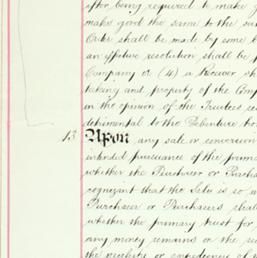 after being required to make
make good the same to the
Order shall be made by some
an effective resolution shall be
Company or (4) a Receiver
taking and property of the
in the opinion of the Trustees
detrimental to the Debenture
13 Upon any sale or conversion
intended pursuance of the
whether the Purchaser or
cognizant that the Sale is so
Purchaser or Purchasers shall
whether the primary trust for
any money remains or the
the propriety or expediency of